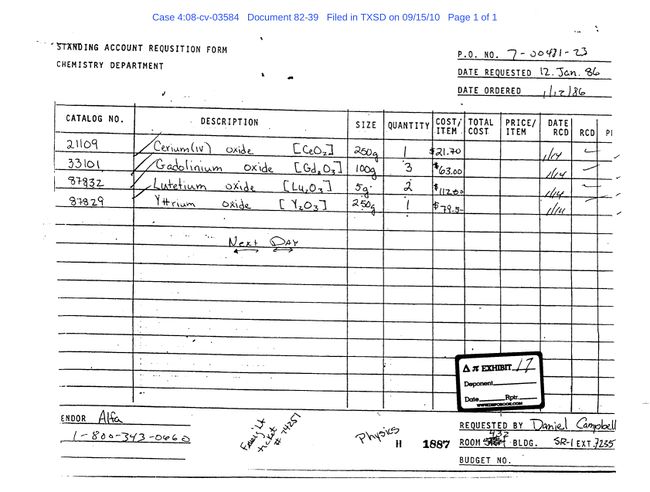 Case 4:08-cv-03584 Document 82-39 Filed in TXSD on 09/15/10 Page 1 of 1
STANDING ACCOUNT REQUSITION FORM
CHEMISTRY DEPARTMENT
P.O. NO. 7-00481-23
DATE REQUESTED 12. Jan. 86
DATE ORDERED 1/12/86
CATALOG NO. DESCRIPTION SIZE QUANTITY COST/ITEM TOTAL COST PRICE/ITEM DATE RCD RCD
21109 Cerium(iv) oxide [CeO2] 250g 1 $21.70 1/14
33101 Gadolinium oxide [Gd2O3] 100g 3 $63.00 1/14
87832 Lutetium oxide [Lu2O3] 5g 2 $112.00 1/14
87829 Yttrium oxide [Y2O3] 250g 1 $79.50
Next Day
Δ π EXHIBIT 17
Deponent
Date Rptr.
WWW.DEPOBOOK.COM
ENDOR Alfa
1-800-343-0660
ticket # 74257
Physics
H 1887
REQUESTED BY Daniel Campbell
ROOM 437 BLDG. SR-1 EXT. 7255
BUDGET NO.